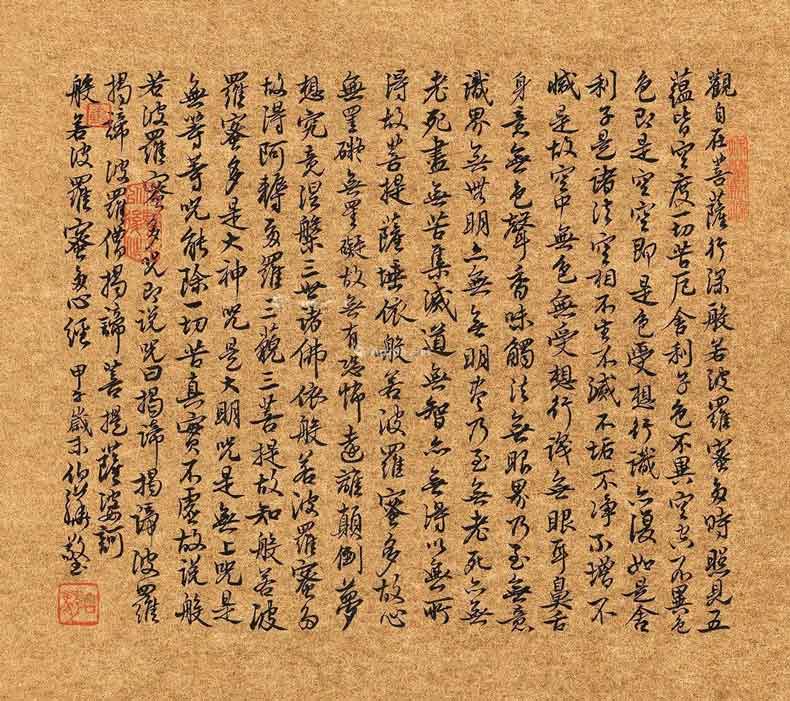 觀自在菩薩行深般若波羅蜜多時照見五
蘊皆空度一切苦厄舍利子色不異空空不異色
色即是空空即是色受想行識亦復如是舍
利子是諸法空相不生不滅不垢不净不增不
減是故空中無色無受想行識無眼耳鼻舌
身意無色聲香味觸法無眼界乃至無意
識界無無明亦無無明尽乃至無老死亦無
老死盡無苦集滅道無智亦無得以無所
得故菩提薩埵依般若波羅蜜多故心
無罣礙無罣礙故無有恐怖遠離顛倒夢
想究竟涅槃三世諸佛依般若波羅蜜多
故得阿耨多羅三藐三菩提故知般若波
羅蜜多是大神咒是大明咒是無上咒是
無等等咒能除一切苦真實不虛故説般
若波羅蜜多咒即説咒曰揭諦揭諦波羅
揭諦波羅僧揭諦菩提薩婆訶
般若波羅蜜多心經 甲子歲末伯